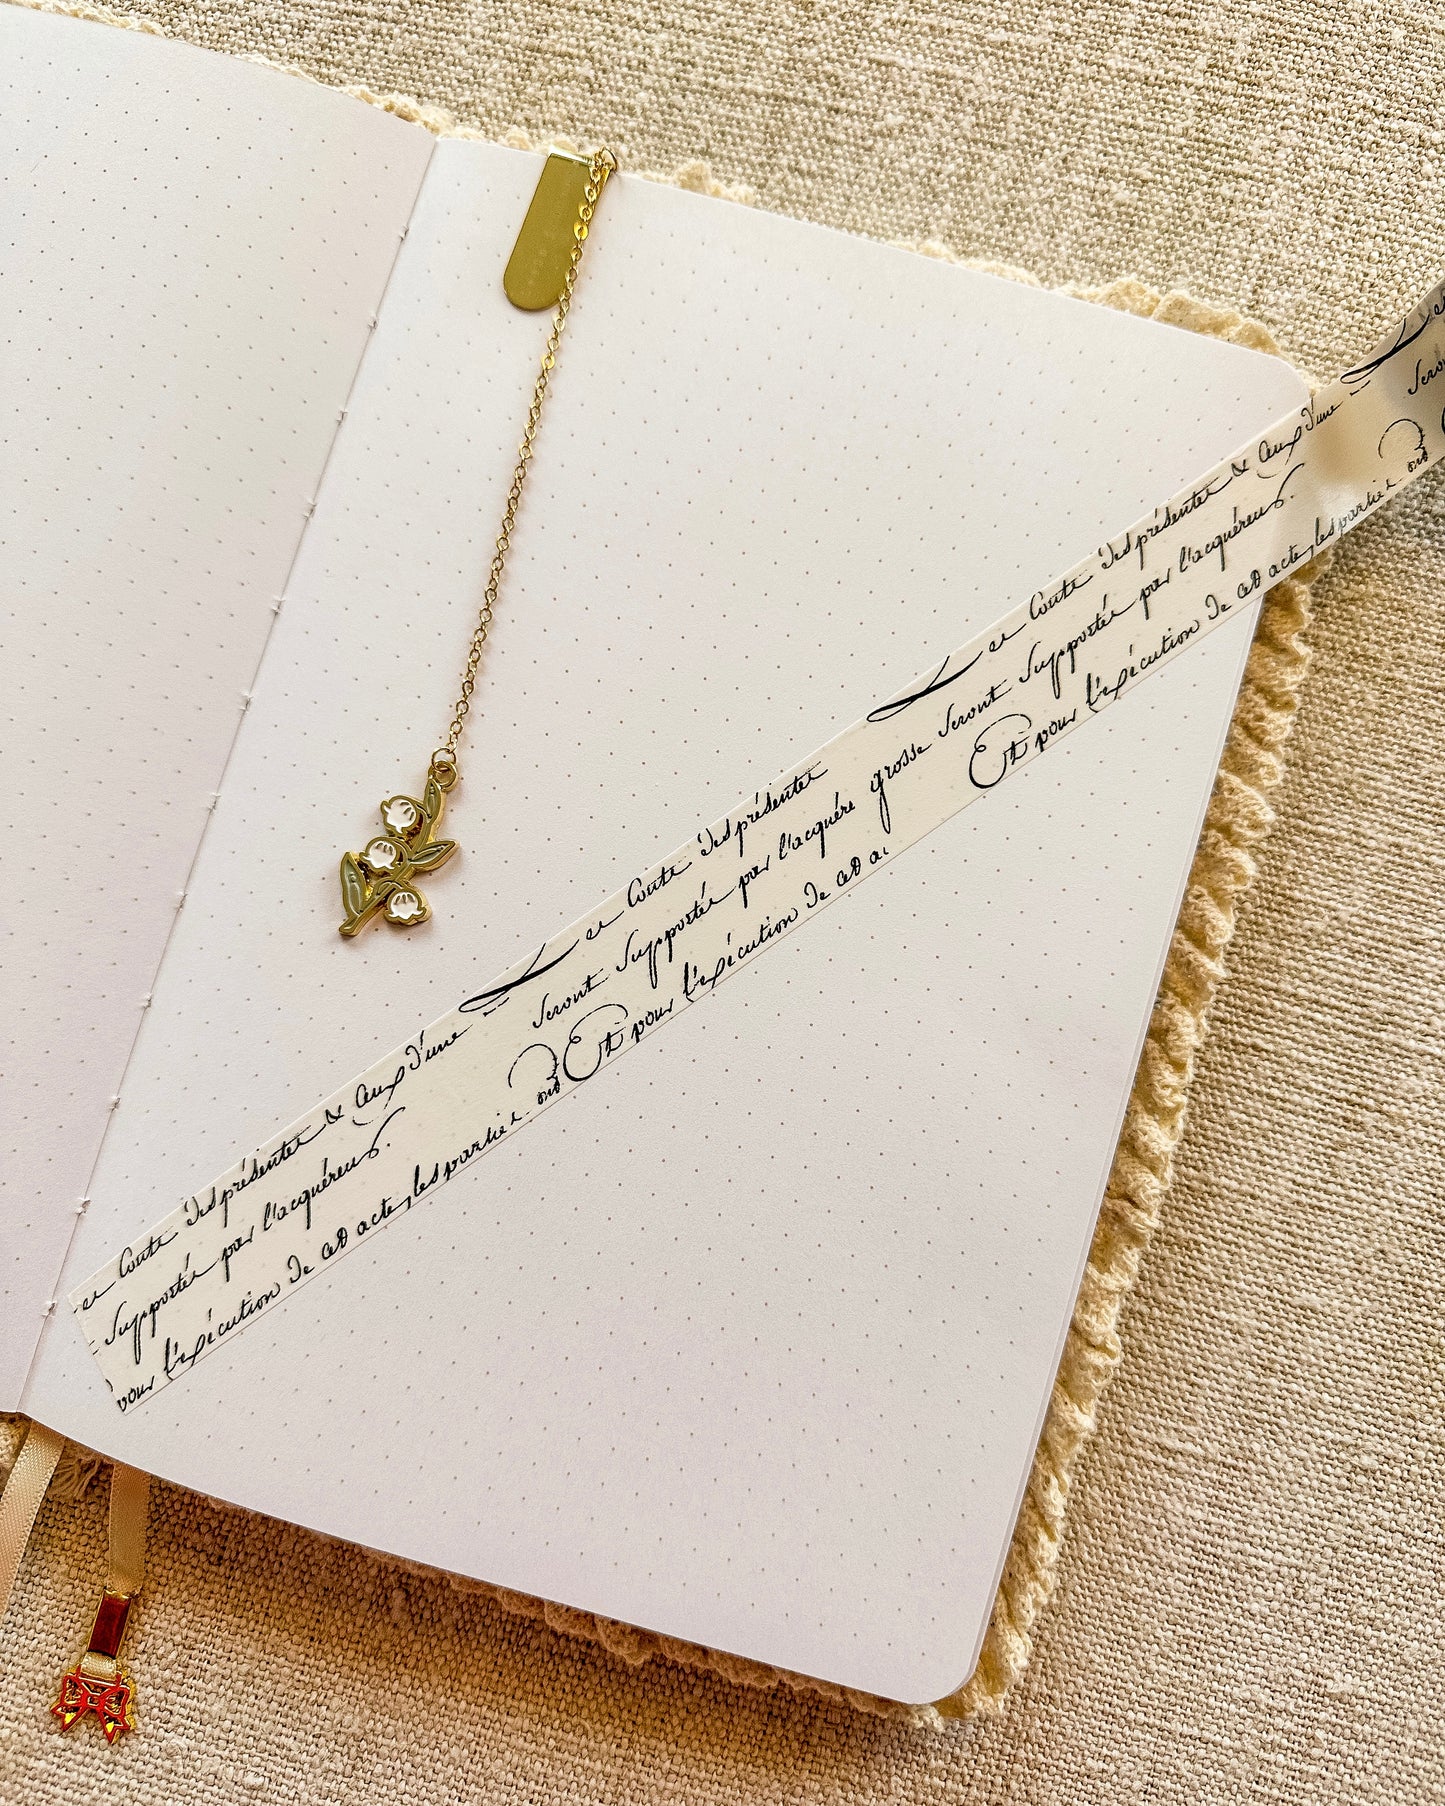 Coute Des présentes & Ceux D'une Coute Des présentes Coute Des présentes & Ceux D'une
Supportés par l'acquéreur. Seront Supportés par l'acquére grosse Seront Supportés par l'acquéreur.
pour l'exécution De cet acte, les parties ont Et pour l'exécution De cet a Et pour l'exécution De cet acte, les parties ont